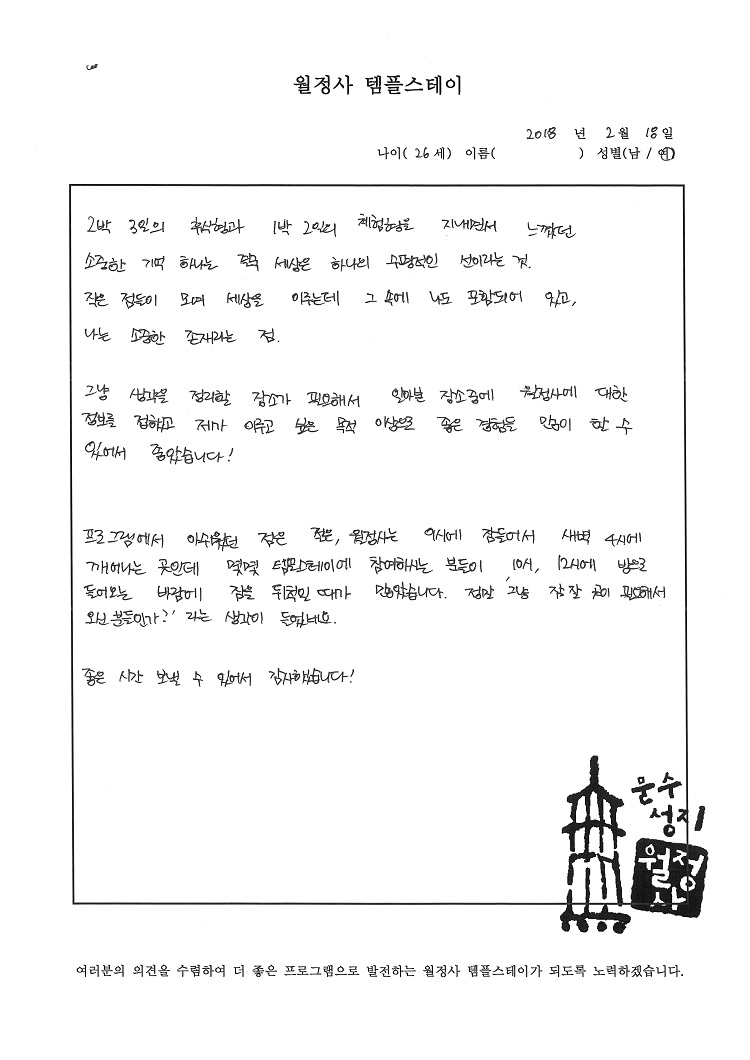 월정사 템플스테이
2018 년 2월 18일
나이( 26세) 이름( ) 성별(남 / 여)
2박 3일의 휴식형과 1박 2일의 체험형을 지내면서 느꼈던
소중한 기억 하나는 결국 세상은 하나의 수평적인 선이라는 것.
작은 점들이 모여 세상을 이루는데 그 속에 나도 포함되어 있고,
나는 소중한 존재라는 점.
그냥 생각을 정리할 장소가 필요해서 알아본 장소중에 월정사에 대한
정보를 접하고 제가 이루고 싶은 목적 이상으로 좋은 경험들 많이 할 수
있어서 좋았습니다!
프로그램에서 아쉬웠던 점은 절은, 월정사는 9시에 잠들어서 새벽 4시에
깨어나는 곳인데 몇몇 템플스테이에 참여하시는 분들이 10시, 12시에 방으로
들어오는 바람에 잠을 뒤척인 때가 많았습니다. 정말 '그냥 잠 잘 곳이 필요해서
오신 분들인가?' 라는 생각이 들었네요.
좋은 시간 보낼 수 있어서 감사했습니다!
문수
성지
월정
사
여러분의 의견을 수렴하여 더 좋은 프로그램으로 발전하는 월정사 템플스테이가 되도록 노력하겠습니다.